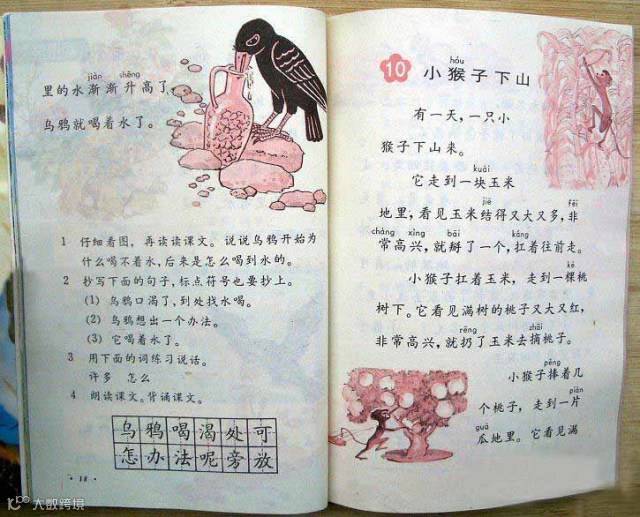 jiàn shēng
里的水渐渐升高了，
乌鸦就喝着水了。
1 仔细看图，再读读课文。说说乌鸦开始为
什么喝不着水，后来是怎么喝到水的。
2 抄写下面的句子，标点符号也要抄上。
(1) 乌鸦口渴了，到处找水喝。
(2) 乌鸦想出一个办法。
(3) 它喝着水了。
3 用下面的词练习说话。
许多 怎么
4 朗读课文。背诵课文。
乌鸦喝渴处可
怎办法呢旁放
· 18 ·
hóu
10 小猴子下山
有一天，一只小
猴子下山来。
kuài
它走到一块玉米
jiē fēi
地里，看见玉米结得又大又多，非
cháng xìng bāi káng
常高兴，就掰了一个，扛着往前走。
kē
小猴子扛着玉米，走到一棵桃
树下。它看见满树的桃子又大又红，
rēng zhāi
非常高兴，就扔了玉米去摘桃子。
pěng
小猴子捧着几
piàn
个桃子，走到一片
guā
瓜地里。它看见满
大数跨境